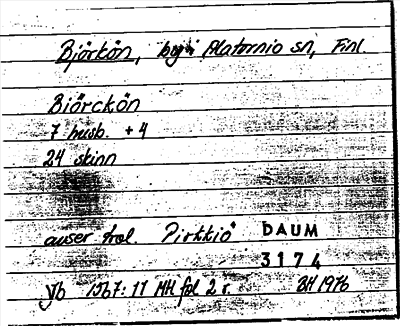 Björkön, by i Alatornio sn, Finl.
Biörckön
7 husb. +4
24 skinn
avser trol. Pirkkiö DAUM
3174
Jb 1567:11 MH fol 2 r. BH 1976